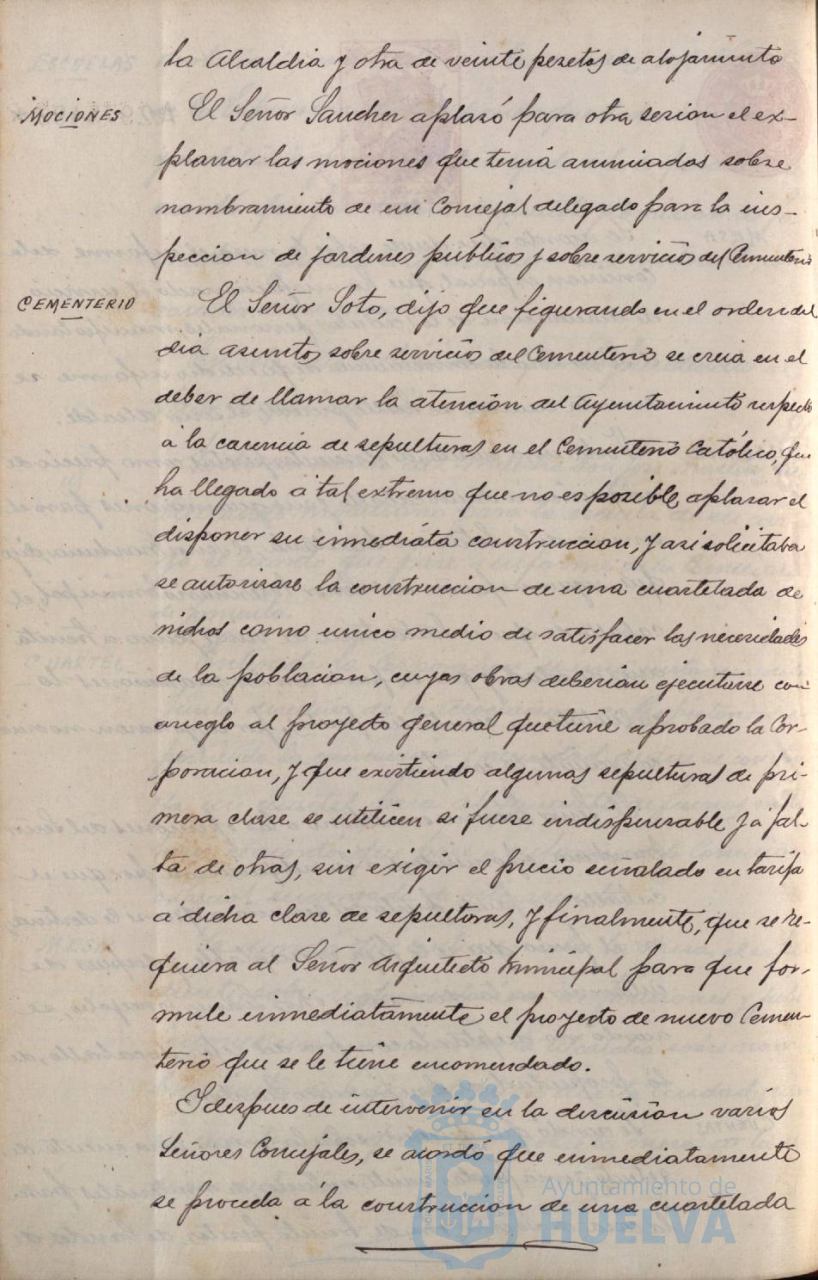 la Alcaldia y otra de veinte pesetas de alojamiento
MOCIONES
El Señor Sanchez aplazó para otra sesion el ex-
planar las mociones que tenia anunciadas sobre
nombramiento de un Concejal delegado para la ins-
peccion de jardines públicos y sobre servicios del Cementerio
CEMENTERIO
El Señor Soto, dijo que figurando en el orden del
dia asuntos sobre servicios del Cementerio se creia en el
deber de llamar la atención del Ayuntamiento respecto
á la carencia de sepulturas en el Cementerio Católico, que
ha llegado á tal extremo que no es posible aplazar el
disponer su inmediata construccion, y asi solicitaba
se autorizase la construccion de una cuartelada de
nichos como unico medio de satisfacer las necesidades
de la poblacion, cuyas obras deberian ejecutarse con
arreglo al proyecto general que tiene aprobado la Cor-
poracion, y que existiendo algunas sepulturas de pri-
mera clase se utilicen si fuese indispensable y á fal-
ta de otras, sin exigir el precio señalado en tarifa
á dicha clase de sepulturas, y finalmente, que se re-
quiera al Señor Arquitecto Municipal para que for-
mule inmediatamente el proyecto de nuevo Cemen-
terio que se le tiene encomendado.
Y despues de intervenir en la discusion varios
Señores Concejales, se acordó que inmediatamente
se proceda á la construccion de una cuartelada
Ayuntamiento de
HUELVA